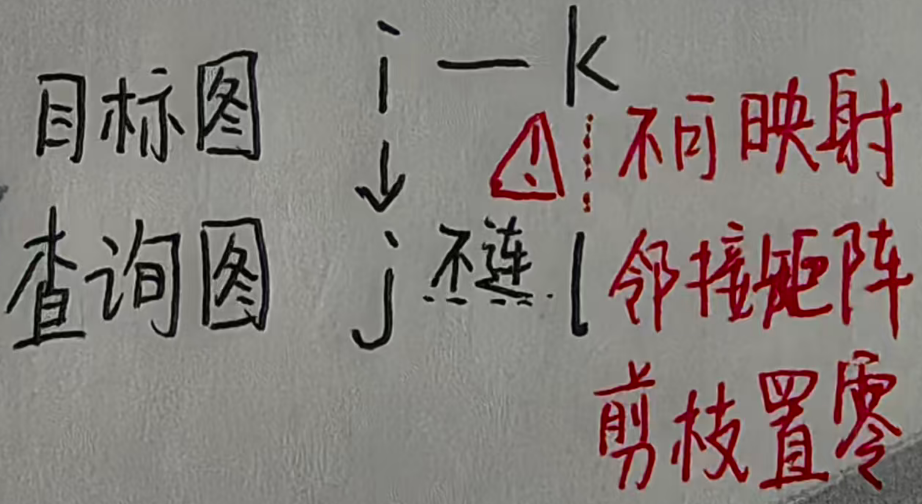 目标图 i — k
不可映射
查询图 j 不连 l
邻接矩阵
剪枝置零